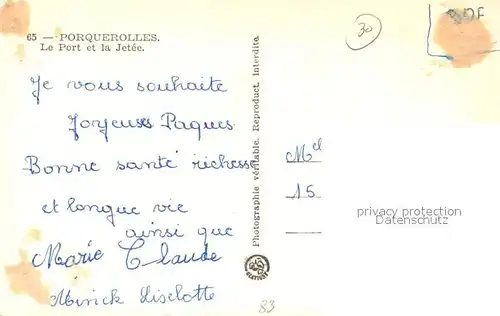 65 — PORQUEROLLES.
Le Port et la Jetée.
Je vous souhaite
Joyeuses Paques
Bonne santé richesse
et longue vie
ainsi que
Marie Claude
Mirick Liselotte
Photographie véritable. Reproduct. Interdite.
30
Mel
15
privacy protection
Datenschutz
83